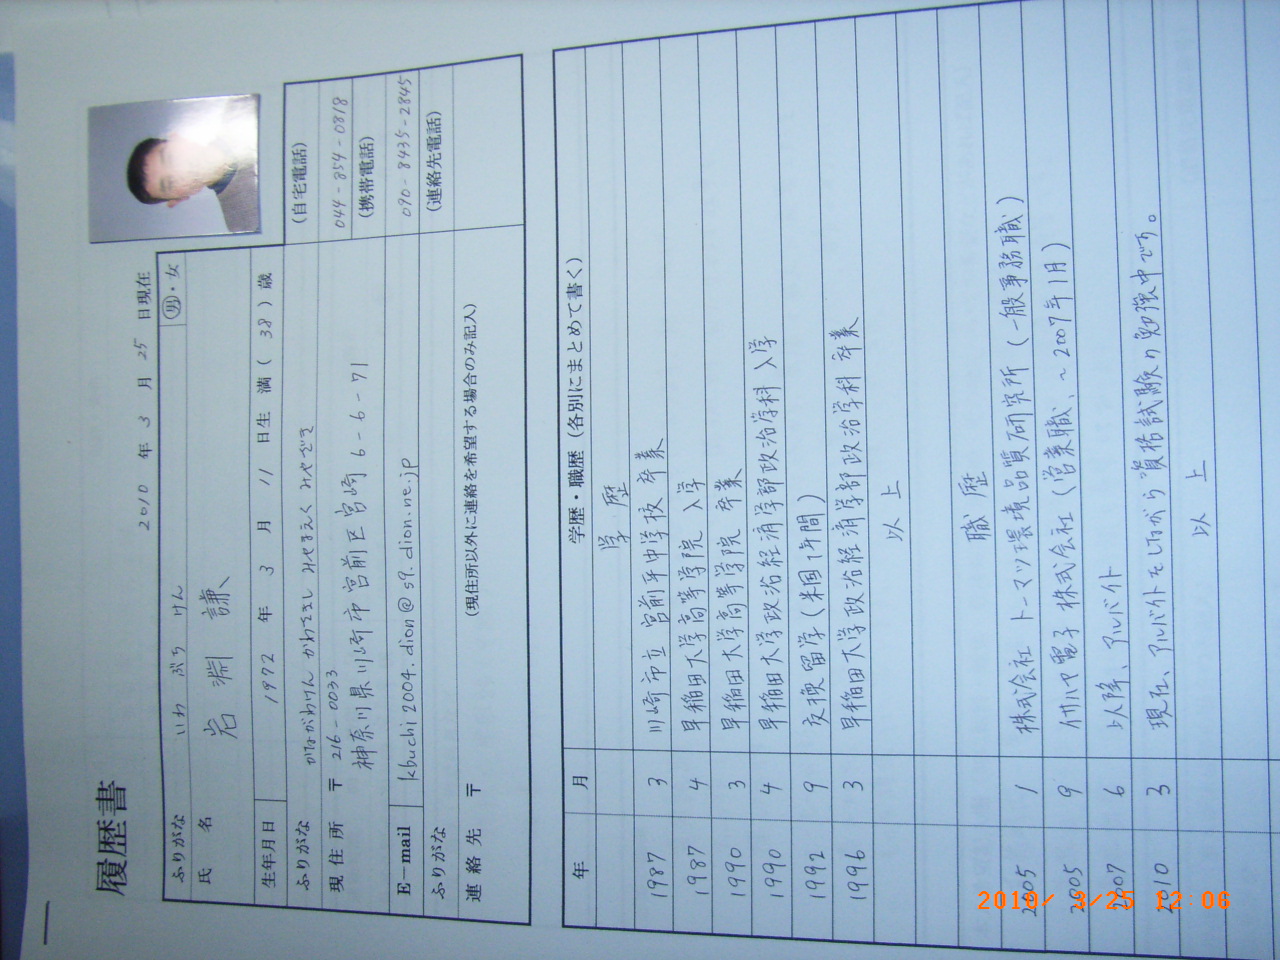 履歴書
2010 年 3 月 25 日現在
ふりがな いわ ぶち けん 男・女
氏 名 岩 淵 謙
生年月日 1972 年 3 月 11 日生 満 ( 38 ) 歳
ふりがな かながわけん かわさきし みやまえく みやざき
(自宅電話)
044-854-0818
現 住 所 〒 216-0033
神奈川県川崎市宮前区宮崎6-6-71
(携帯電話)
090-8435-2845
E-mail kbuchi2004.dion@s9.dion.ne.jp
ふりがな
(連絡先電話)
連 絡 先 〒 (現住所以外に連絡を希望する場合のみ記入)
年 月 学歴・職歴 (各別にまとめて書く)
学 歴
1987 3 川崎市立 宮前平中学校 卒業
1987 4 早稲田大学高等学院 入学
1990 3 早稲田大学高等学院 卒業
1990 4 早稲田大学政治経済学部政治学科 入学
1992 9 交換留学(米国1年間)
1996 3 早稲田大学政治経済学部政治学科 卒業
以 上
職 歴
2005 1 株式会社 トーマツ環境品質研究所 (一般事務職)
2005 9 株式会社 (営業職、~2007年1月)
2007 6 以降、アルバイト
2010 3 現在、アルバイトをしながら資格試験の勉強中です。
以 上
2010/ 3/25 12:06